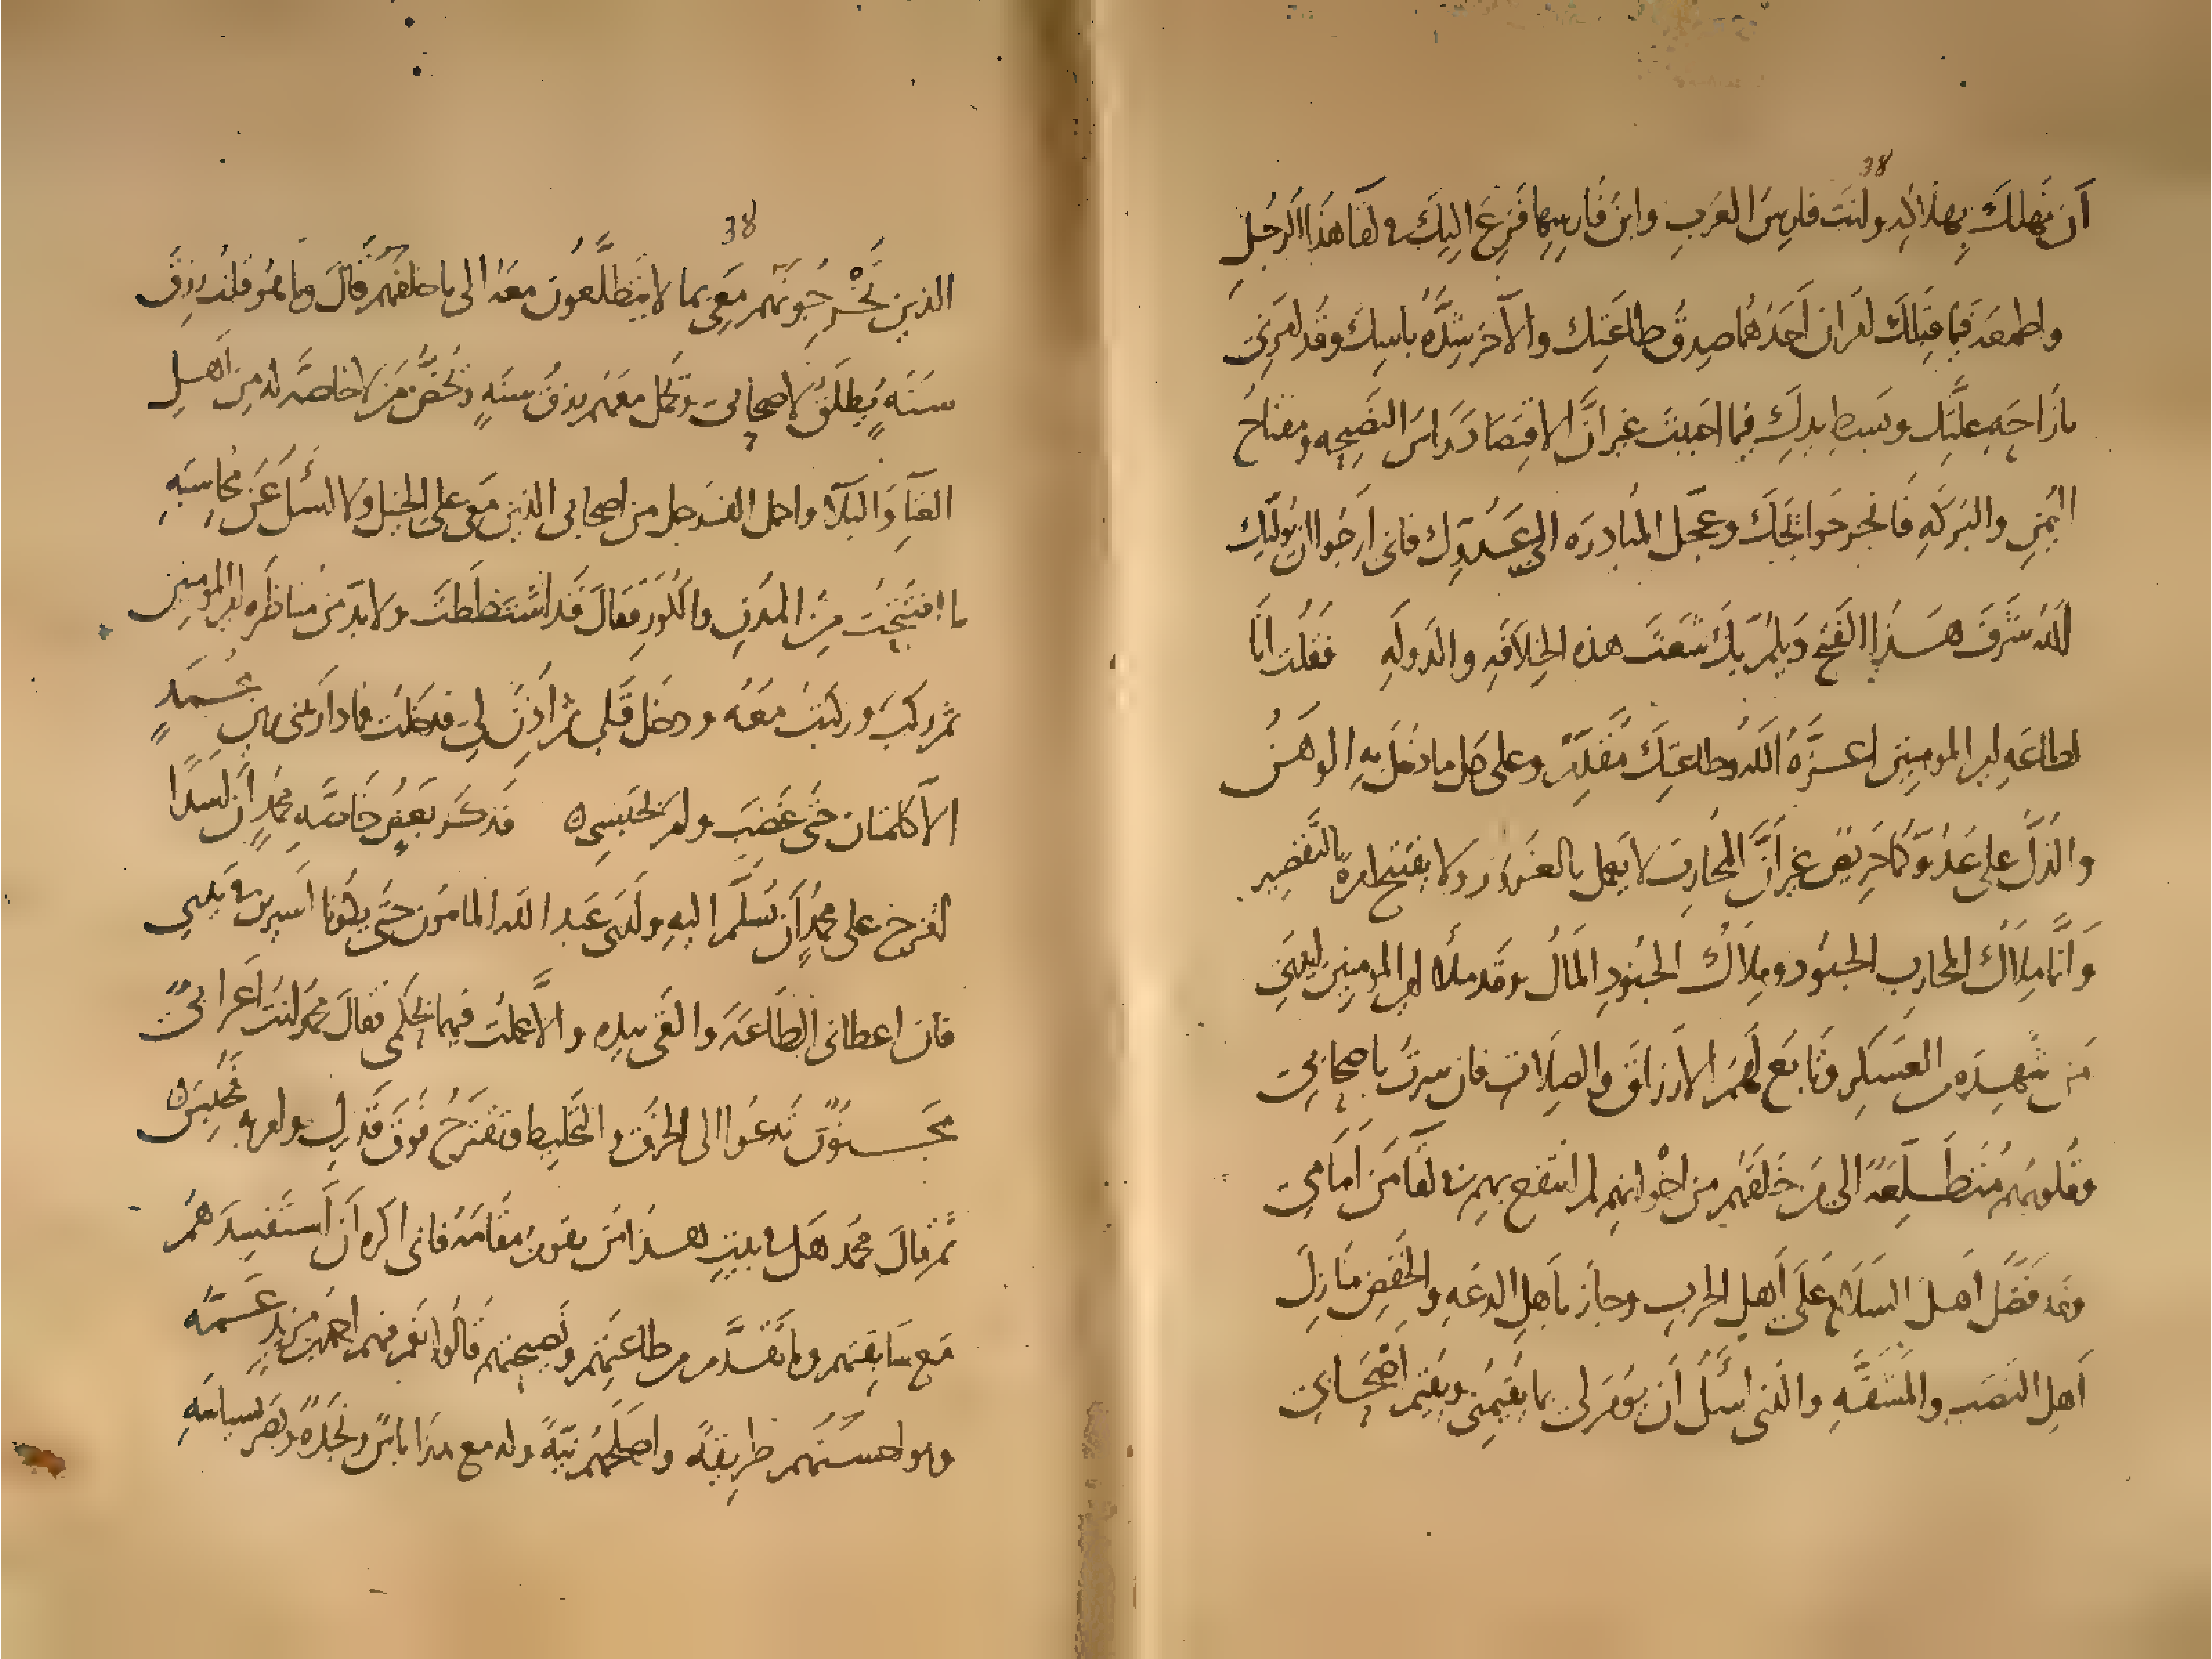 38
أن نهلك بهلاكه وانت فارس العرب وابن فارسها فزع اليك في لقا هذا الرجل
واطمعه فيما قبلك امران احدهما صدق طاعتك والآخر شدة باسك وقد امرني
بازاحه علتك وبسط يدك فيما احببت غير ان الاقتصاد راس النصيحه ومفتاح
اليمن والبركه فانجز حوائجك وعجل المبادره الى عدوك فانى ارجوا ان يوليك
الله شرف هذا الفتح ويلم بك شعث هذه الخلافه والدوله فقلت انا
لطاعه امير المومنين اعزه الله وطاعتك مقدم وعلى كل ما دخل به الوهن
والذل على عدوكما حريص غير ان المحارب لا يعمل بالغرور ولا يفتتح امره بالتقصير
وانما ملاك المحارب الجنود وملاك الجنود المال وقد ملأ امير المومنين ايدي
من شهده من العسكر وتابع لهم الارزاق والصلات فان سرت باصحابي
وقلوبهم متطلعة الى من خلفهم من اخوانهم لم انتفع بهم في لقا من امامي
وقد فضل اهل السلام على أهل الحرب وجاز باهل الدعه والخفض منازل
أهل النصب والمشقه والذى اسئل أن يؤمر لى بما يقيمنى ويقيم اصحابي
38
الذين تخرجونهم معي بما لا يتطلعون معه الى ما خلفهم قال وما هو قلت رزق
سنه يطلق لاصحابي وتحمل معهم رزق سنه وتخص من لا خاصه له من اهل
الغنآ والبلآ واحمل الف رجل من اصحابى الذين معى على الخيل ولا اسئل عن محاسبه
ما افتتحت من المدن والكور فقال قد اشتططت ولا بد من مناظره امير المومنين
ثم ركب وركبت معه ودخل قبلى ثم أذن لي فدخلت فما دار بينى وبين محمد
الا كلمتان حتى غضب وامر بحبسي فذكر بعض خاصه محمد ان اسدا
اقترح على محمد أن يسلم اليه ولدى عبد الله المامون حتى يكونا اسيرين في يدي
فان اعطانى الطاعه والقى بيده والا عملت فيهما بحكمى فقال محمد انت اعرابي
مجنون تدعوا الى الخرق والتخليط وتقترح فوق قدرك وامر به فحبس
ثم قال محمد هل في بيت هذا من يقوم مقامه فانى اكره أن استفسدهم
مع سابقتهم وما تقدم من طاعتهم ونصيحتهم قالوا نعم فيهم احمد بن مزيد عمه
وهو احسنهم طريقة واصلحهم نية وله مع هذا باس ونجدة وبصر بسياسه